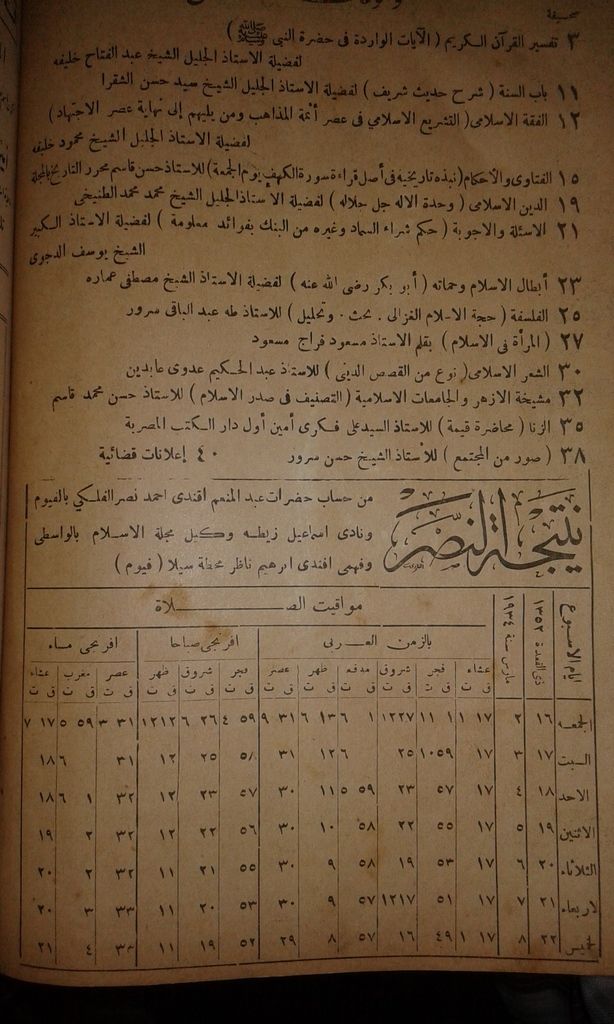 صحيفة
٣ تفسير القرآن الكريم ( الآيات الواردة فى حضرة النبى ﷺ )
لفضيلة الاستاذ الجليل الشيخ عبد الفتاح خليفه
١١ باب السنة ( شرح حديث شريف ) لفضيلة الاستاذ الجليل الشيخ سيد حسن الشقرا
١٢ الفقة الاسلامى ( التشريع الاسلامى فى عصر أئمة المذاهب ومن يليهم إلى نهاية عصر الاجتهاد )
لفضيلة الاستاذ الجليل الشيخ محمود خليفه
١٥ الفتاوى والاحكام ( نبذه تاريخية فى أصل قراءة سورة الكهف يوم الجمعة ) للاستاذ حسن قاسم محرر التاريخ بالمجلة
١٩ الدين الاسلامى ( وحدة الاله جل جلاله ) لفضيلة الاستاذ الجليل الشيخ محمد محمد الطنيخى
٢١ الاسئلة والاجوبة ( حكم شراء السماد وغيره من البنك بفوائد معلومة ) لفضيلة الاستاذ الكبير
الشيخ يوسف الدجوى
٢٣ أبطال الاسلام وحماته ( أبو بكر رضى الله عنه ) لفضيلة الاستاذ الشيخ مصطفى عماره
٢٥ الفلسفة ( حجة الاسلام الغزالى . بحث . وتحليل ) للاستاذ طه عبد الباقى سرور
٢٧ ( المرأة فى الاسلام ) بقلم الاستاذ مسعود فراج مسعود
٣٠ الشعر الاسلامى ( نوع من القصص الدينى ) للاستاذ عبد الحكيم عدوى عابدين
٣٢ مشيخة الازهر والجامعات الاسلامية ( التصنيف فى صدر الاسلام ) للاستاذ حسن محمد قاسم
٣٥ الزنا ( محاضرة قيمة ) للاستاذ السيد على فكرى أمين أول دار الكتب المصرية
٣٨ ( صور من المجتمع ) للأستاذ الشيخ حسن سرور ٤٠ إعلانات قضائية
نتيجة النصر
من حساب حضرات عبد المنعم افندى احمد نصر الفلكى بالفيوم
ونادى اسماعيل زيطه وكيل مجلة الاسلام بالواسطى
وفهمى افندى ابرهيم ناظر محطة سيلا ( فيوم )
ايام الاسبوع ذى القعدة ١٣٥٢ مارس سنة ١٩٣٤ مواقيت الصلاة
بالزمن العربى افرنجى صباحا افرنجى مساء
عشاء فجر شروق مدفعه ظهر عصر فجر شروق ظهر عصر مغرب عشاء
ق ت ق ت ق ت ق ت ق ت ق ت ق ت ق ت ق ت ق ت ق ت ق ت
الجمعه ١٦ ٢ ١٧ ١ ١ ١١ ١٢٢٧ ١ ٦ ١٣ ٦ ٣١ ٩ ٥٩ ٤ ٢٦ ٦ ١٢١٢ ٣١ ٣ ٥٩ ٥ ١٧ ٧
السبت ١٧ ٣ ١٧ ١٠٥٩ ٢٥ ٦ ١٢ ٣١ ٥٨ ٢٥ ١٢ ٣١ ٦ ١٨
الاحد ١٨ ٤ ١٧ ٥٧ ٢٣ ٥٩ ٥ ١١ ٣٠ ٥٧ ٢٣ ١٢ ٣٢ ١ ٦ ١٨
الاثنين ١٩ ٥ ١٧ ٥٥ ٢٢ ٥٨ ١٠ ٣٠ ٥٦ ٢٢ ١٢ ٣٢ ٢ ١٩
الثلاثاء ٢٠ ٦ ١٧ ٥٣ ١٩ ٥٨ ٩ ٣٠ ٥٥ ٢١ ١١ ٣٢ ٢ ٢٠
الاربعاء ٢١ ٧ ١٧ ٥١ ١٢١٧ ٥٧ ٩ ٣٠ ٥٣ ٢٠ ١١ ٣٣ ٣ ٢٠
الخميس ٢٢ ٨ ١٧ ١ ٤٩ ١٦ ٥٧ ٨ ٢٩ ٥٢ ١٩ ١١ ٣٣ ٤ ٢١